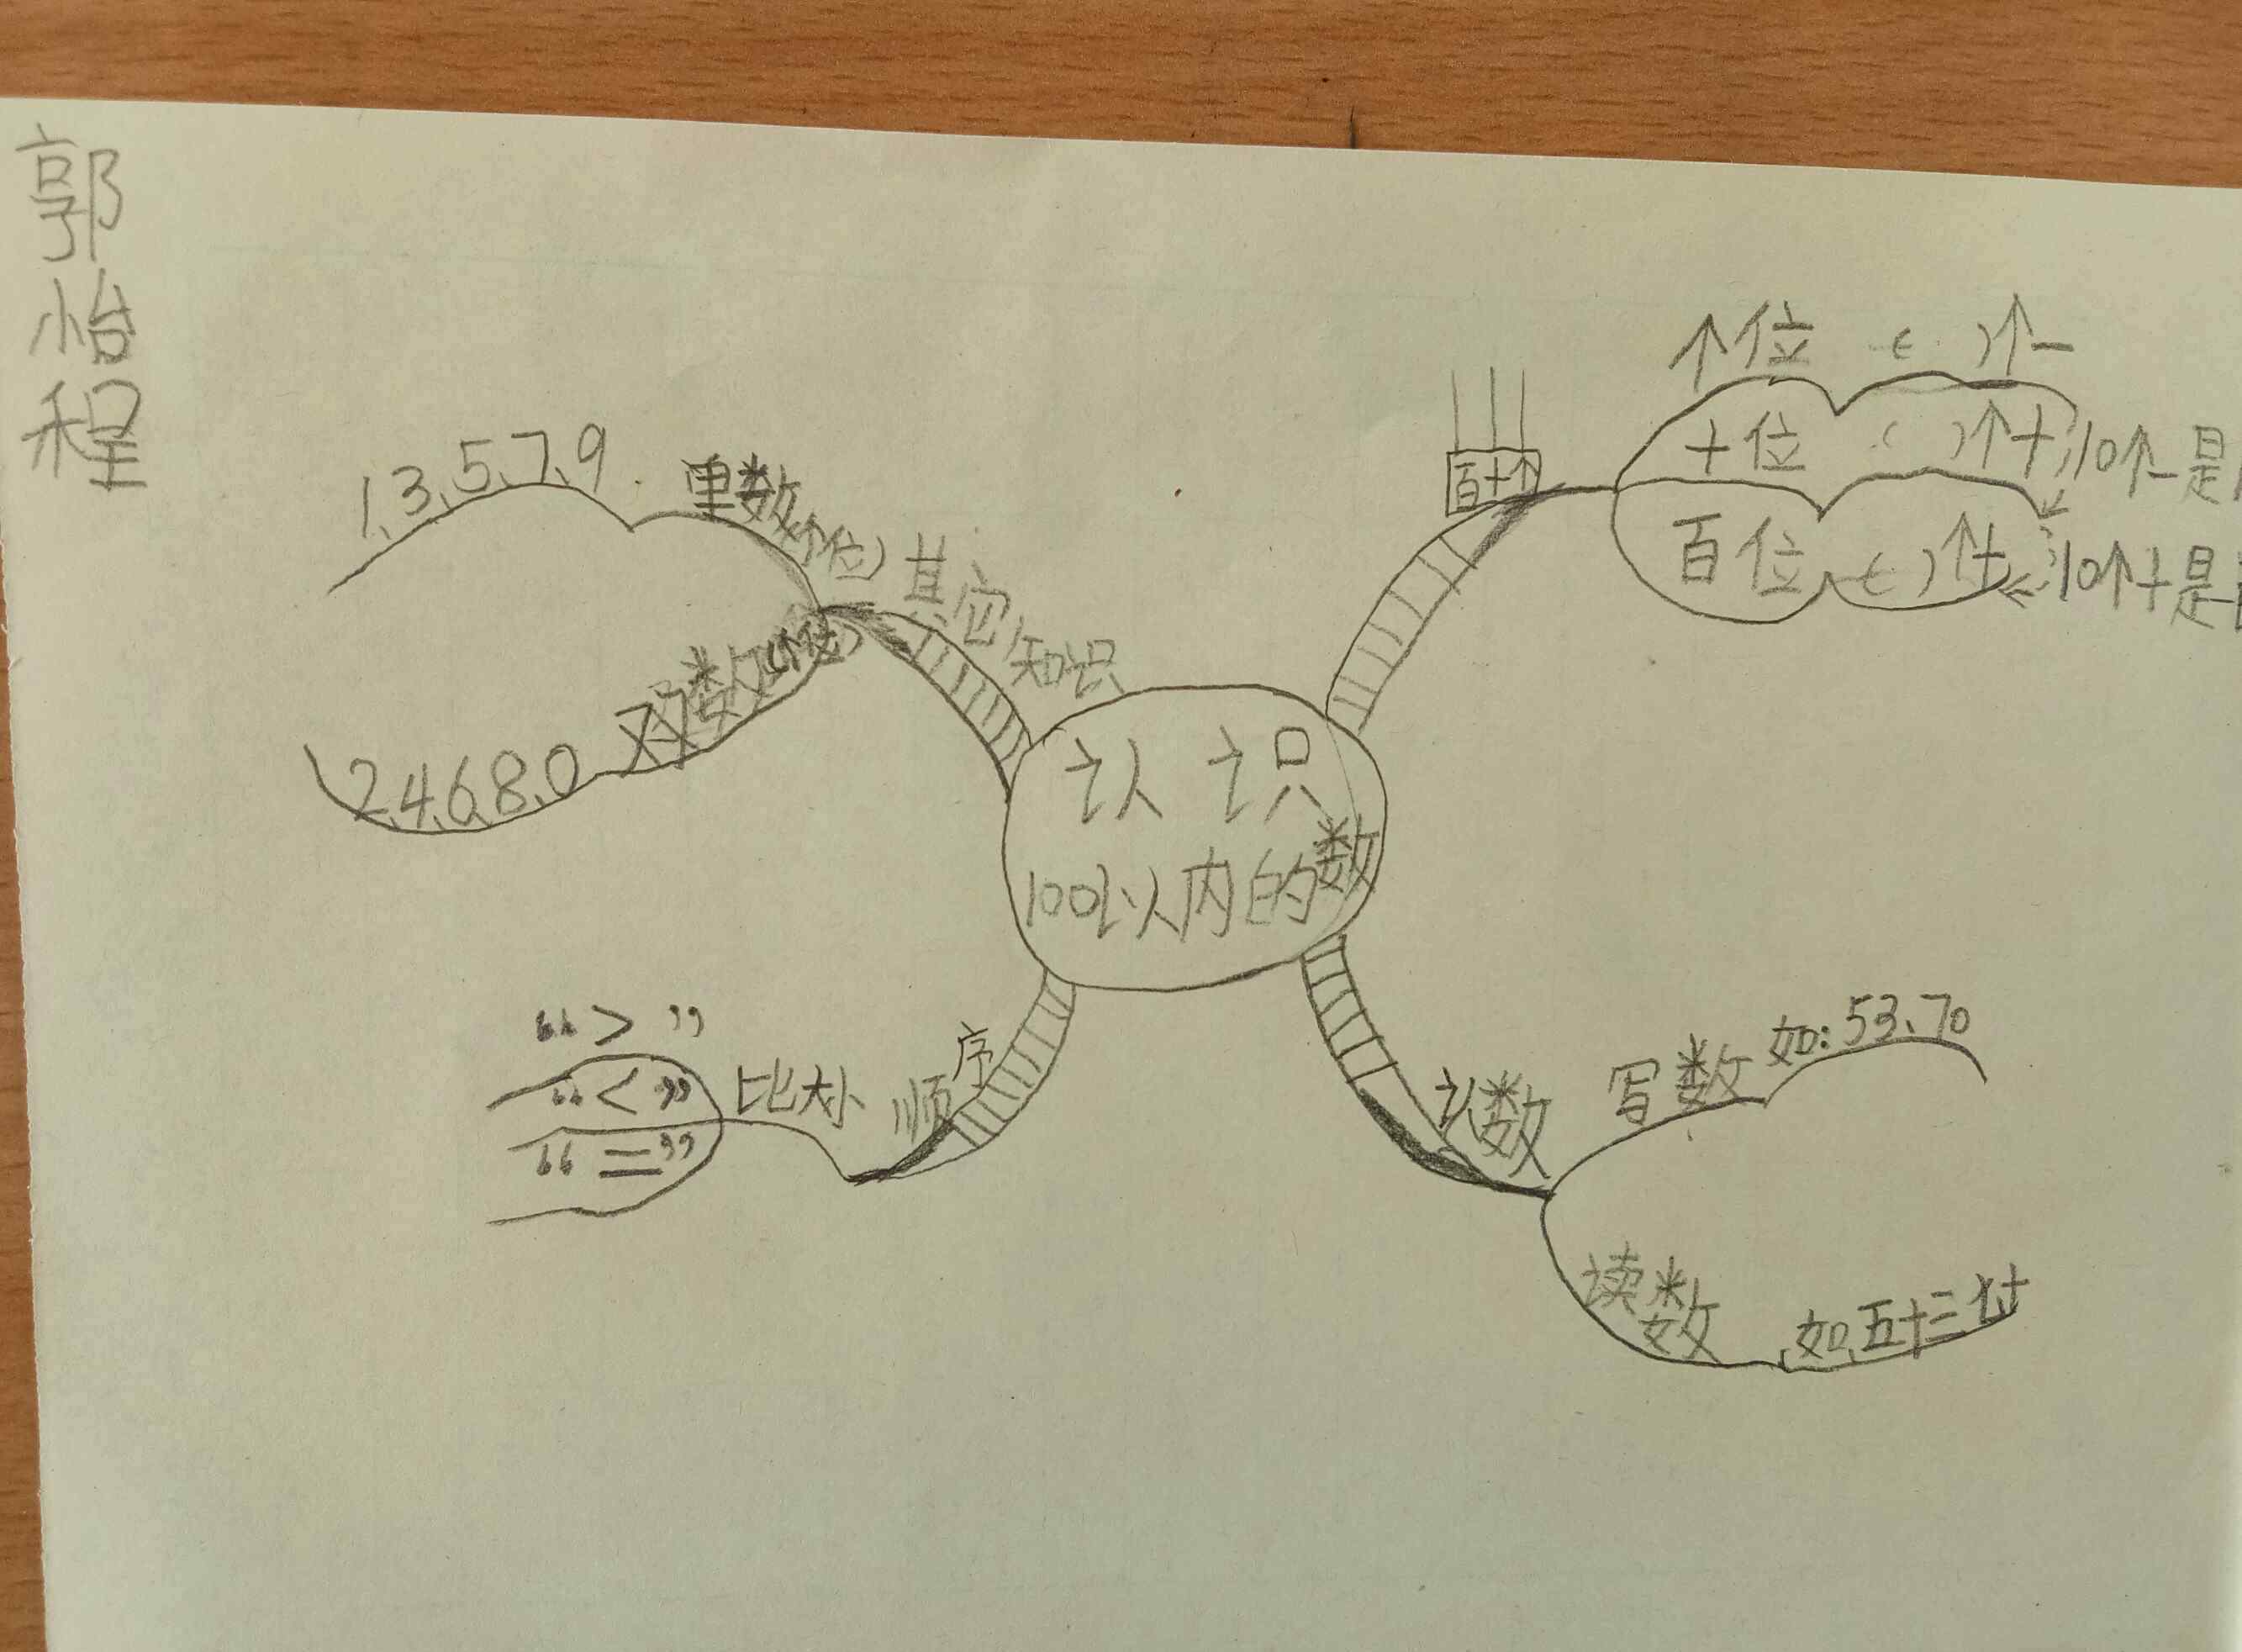 郭怡程
认识
100以内的数
其它知识
单数(个位)
1、3、5、7、9
双数(个位)
2、4、6、8、0
百十个
个位 ( )个一
十位 ( )个十
10个一是
百位 ( )个十
10个十是
认数
写数 如:53、70
读数 如五十三
顺序
比大小
“>”
“<”
“=”